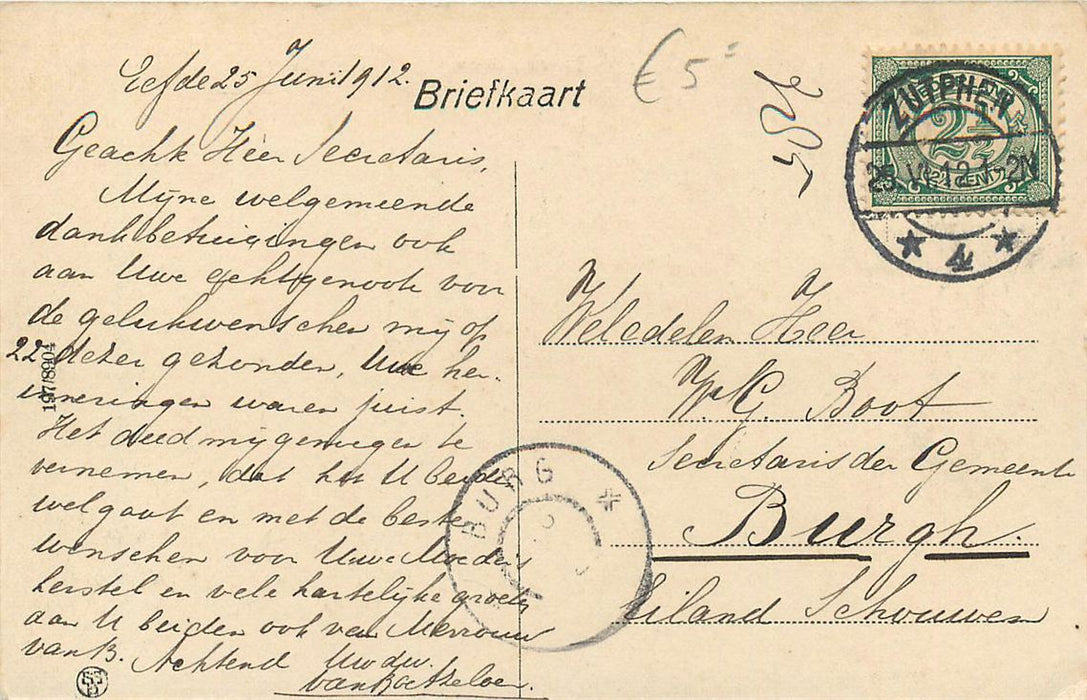 Eefde 25 Juni 1912.
Briefkaart
€ 5=
Geachte Heer Secretaris,
Mijne welgemeende
dankbetuigingen ook
aan Uwe echtgenoote voor
de gelukwenschen mij op
22 dezer gezonden, Uwe her-
inneringen waren juist.
Het deed mij genoegen te
vernemen, dat het U beiden
welgaat en met de beste
wenschen voor Uwe Moeders
herstel en vele hartelijke groeten
aan U beiden ook van Mevrouw
van B. Achtend Uw dw.
197/8904
NEDERLAND
2½
2½ CENT
ZUTPHEN
25 VI 12 1-2N
4
Weledelen Heer
W. G. Boot
Secretaris der Gemeente
Burgh.
Eiland Schouwen
BURG